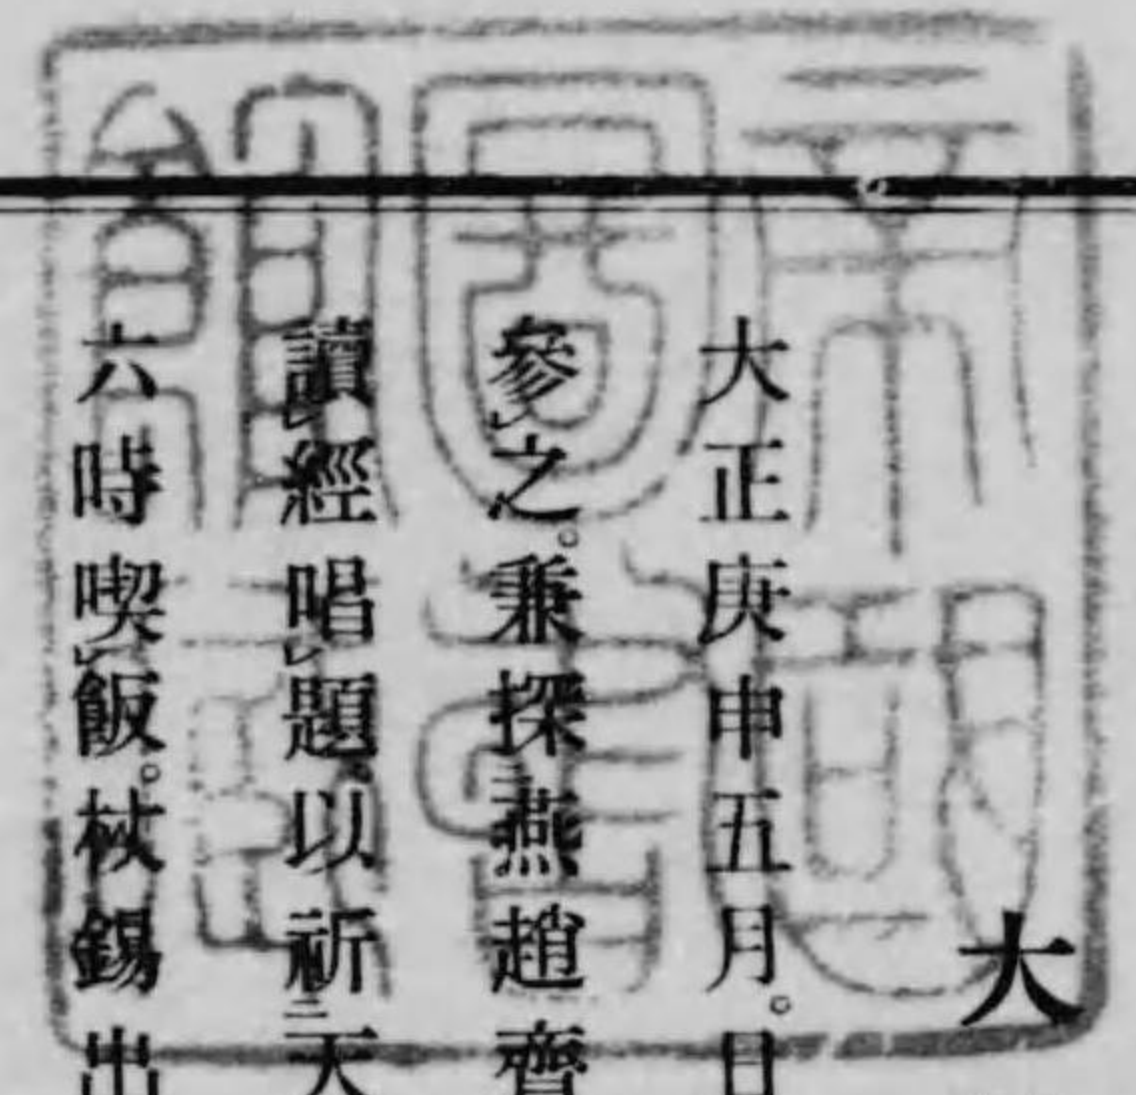 大
大正庚申五月。日
參之。兼探燕趙齊
讀經唱題。以祈天
六時喫飯。杖錫出
帝國圖書館藏